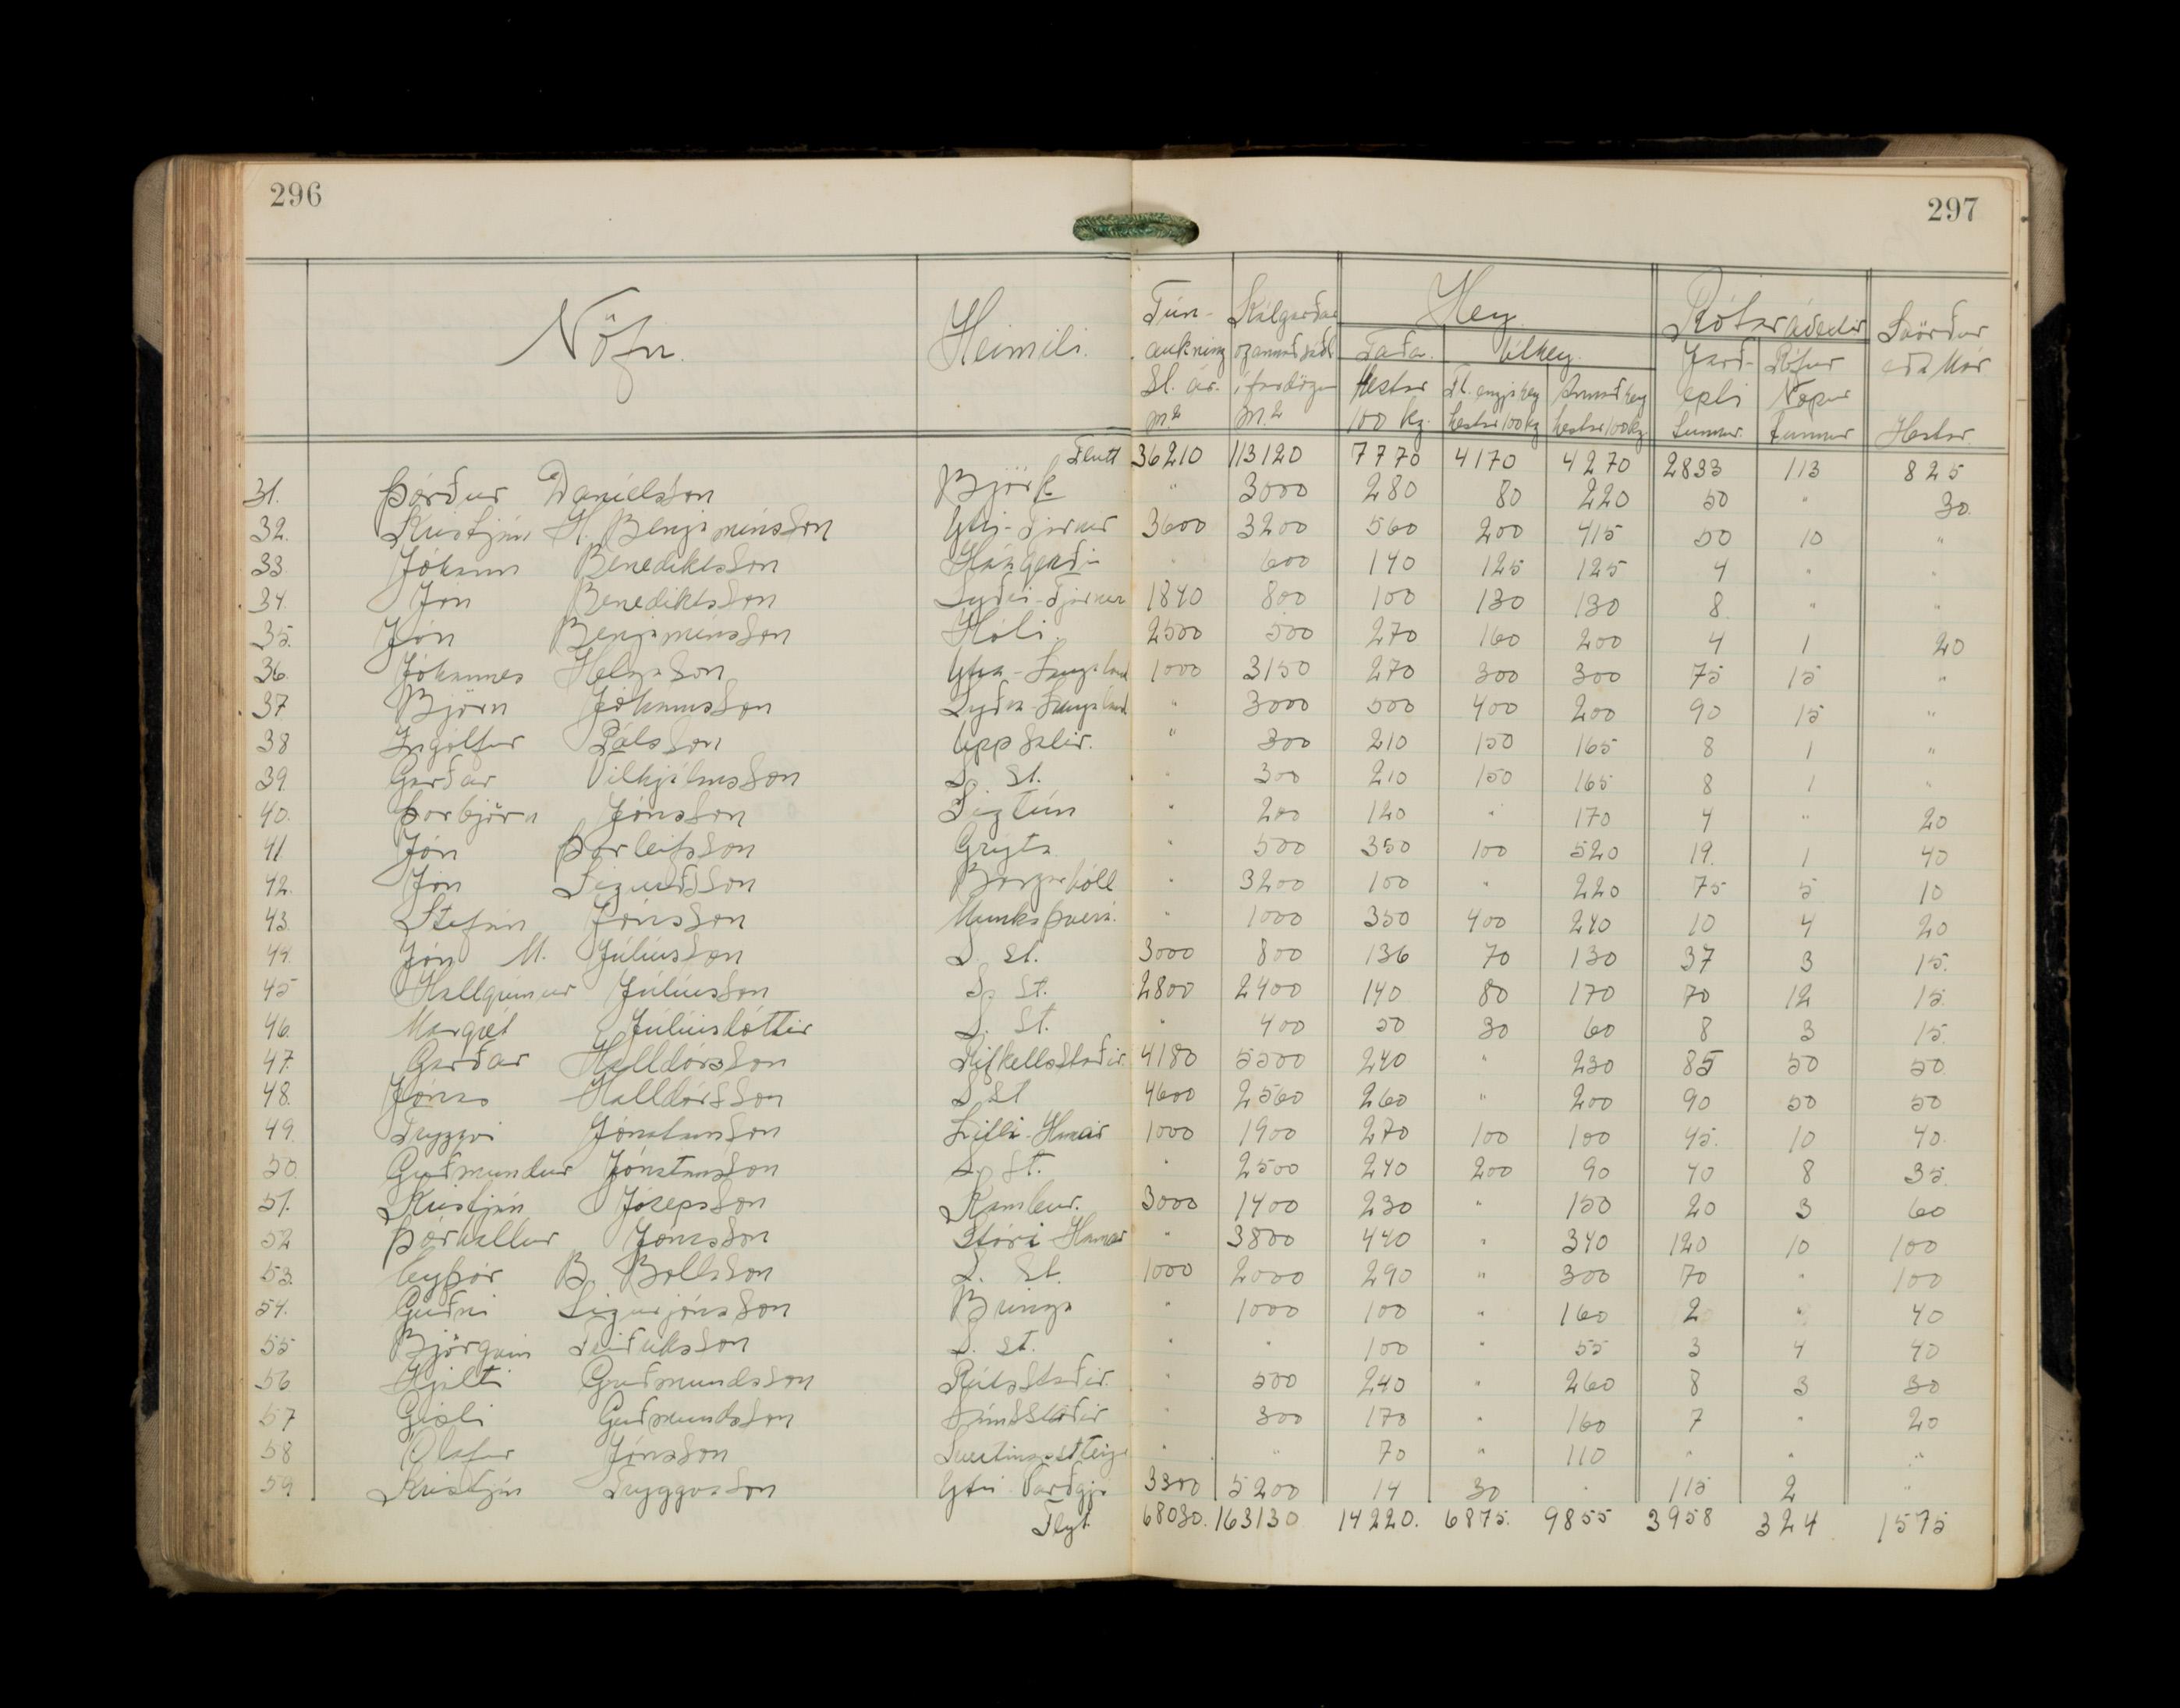 296
297
Nöfn. Heimili. Tún- aukning Sl. ár. m2 Kálgarðar og annað sáðl. í fardögum m.2 Hey Taða. Hestar 100 kg. Úthey. Fl. engjahey hestar 100 kg Annað hey hestar 100 kg Rótarávextir Jarð- epli tunnur. Rófur Næpur tunnur Svörður eða Mór Hestar.
Flutt 36210 113120 7770 4170 4270 2833 113 825
31. Þórður Daníelsson Björk " 3000 280 80 220 50 " 30.
32. Kristján H. Benjamínsson Ytri-Tjarnir 3600 3200 560 200 415 50 10 "
33 Jóhann Benediktsson Háagerði " 600 140 125 125 4 " "
34. Jón Benediktsson Syðri-Tjarnir 1840 800 100 130 130 8. " "
35. Jón Benjamínsson Hóli. 2500 500 270 160 200 4 1 20
36. Jóhannes Helgason Ytra-Laugaland 1000 3150 270 300 300 75 15 "
37. Björn Jóhannsson Syðra-Laugaland " 3000 500 400 200 90 15 "
38 Ingólfur Pálsson Uppsalir. " 300 210 150 165 8 1 "
39 Garðar Vilhjálmsson S. st. " 300 210 150 165 8 1 "
40. Þorbjörn Jónsson Sigtún " 200 120 " 170 4 " 20
41 Jón Þorleifsson Grýta " 500 350 100 520 19. 1 40
42. Jón Sigurðsson Borgarhóll " 3200 100 " 220 75 5 10
43. Stefán Jónsson Munkaþverá. " 1000 350 400 240 10 4 20
44. Jón M. Júlíusson S. st. 3000 800 136 70 130 37 3 15.
45 Hallgrímur Júlíusson S. st. 2800 2400 140 80 170 70 12 15.
46. Margrét Júlíusdóttir S. st. " 400 50 30 60 8 3 15.
47. Garðar Halldórsson Rifkelsstaðir. 4180 5500 240 " 230 85 50 50.
48. Jónas Halldórsson S. st 4600 2560 260 " 200 90 50 50
49. Tryggvi Jónatansson Litli-Hamar 1000 1900 270 100 100 45. 10 40.
50. Guðmundur Jónatansson S. st. " 2500 240 200 90 40 8 35.
51. Kristján Jósepsson Kambur. 3000 1400 230 " 150 20 3 60
52 Þórhallur Jónasson Stóri Hamar " 3800 440 " 340 120 10 100
53. Eyþór B. Bollason S. st. 1000 2000 290 " 300 70 " 100
54. Guðni Sigurjónsson Bringa " 1000 100 " 160 2 " 40
55 Björgvin S. st. " " 100 " 55 3 4 40
56 Hjalti Guðmundsson Rútsstaðir. " 500 240 " 260 8 3 30
57 Gísli Guðmundsson " 300 170 " 160 7 " 20
58 Ólafur Jónsson " " 70 " 110 " " "
59. Kristján Tryggvason Ytri Varðgjá 3300 5200 14 30 " 115 2 "
Flyt. 68030. 163130 14220. 6875. 9855 3958 324 1575